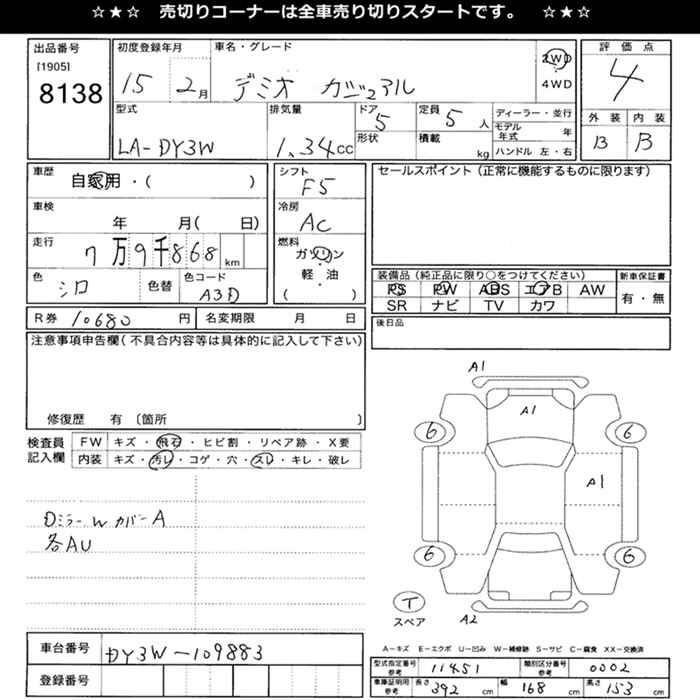 ☆★☆ 売切りコーナーは全車売り切りスタートです。 ☆★☆
出品番号 初度登録年月 車名・グレード 評価点
[1905] 15 2月 デミオ カジュアル 2WD 4
8138 4WD
型式 排気量 ドア 5 定員 5人 ディーラー・並行 外装 内装
LA-DY3W 1.34CC 形状 積載 kg モデル年式 年 B B
ハンドル 左・右
車歴 自家用・( ) シフト F5 セールスポイント(正常に機能するものに限ります)
車検 年 月( 日) 冷房 AC
走行 7万9千868km 燃料 ガソリン
軽・油
( )
色 シロ 色替 色コード A3D
装備品(純正品に限り○をつけてください) 新車保証書
PS PW ABS エアB AW 有・無
SR ナビ TV カワ
R券 10680円 名変期限 月 日 後日品
注意事項申告欄(不具合内容等は具体的に記入して下さい)
修復歴 有〔箇所 〕
検査員記入欄
FW キズ・飛石・ヒビ割・リペア跡・X要
内装 キズ・汚レ・コゲ・穴・スレ・キレ・破レ
Dミラーwカバー A
各AU
A1
A1
6 6
A1
6 6
T
スペア
A2
A-キズ E-エクボ U-凹み W-補修跡 S-サビ C-腐食 XX-交換済
車台番号 DY3W-109883
登録番号
型式指定番号 参考 11451 類別区分番号 参考 0002
車庫証明用 参考 長さ 392cm 幅 168cm 高さ 153cm